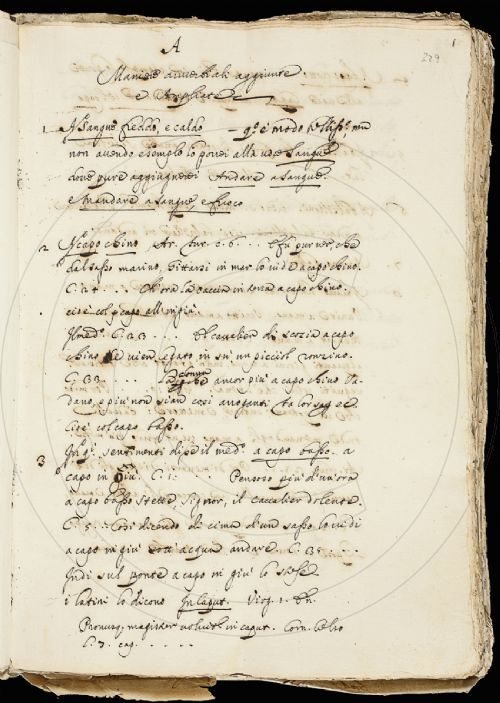 A
1
229
Maniere avverbiali aggiunte
e Ampliate
1 A Sangue freddo, e caldo — qº è modo bellissº ma
non avendo esempio lo porrei alla voce Sangue
dove pure aggiugnerei Andare a Sangue.
e Mandare a Sangue, e fuoco
2 A capo chino, Ar. Fur. c. 6. . . E fu pur ver, che
dal sasso marino, Gittarsi in mar lo vide a capo chino.
C. 24 . . . . Ch'ora la caccia in terra a capo chino.
cioè col capo all'ingiù.
Il medº. C. 23 . . . . Il cavalier di Scozia a capo
chino ne vien legato in su un picciol ronzino.
C. 33 . . . . donna che ancor più a capo chino Va-
dano, e più non sian così arroganti
Cioè col capo basso.
3 In qⁱ. sentimenti disse il medº. a capo basso. a
capo in giù. C. 1. . . . Pensoso più d'un'ora
a capo basso Stette, Signor, il cavalier dolente.
C. 5. . Così dicendo di cima d'un sasso lo vidi
a capo in giù sott'acqua andare. C. 31 . . . .
Indi sul ponte a capo in giù lo
i latini lo dicono In caput. Virg. 1. En.
Pronusq. magister volvitur in caput. Corn. Celso
L. 7. cap. . . . . .